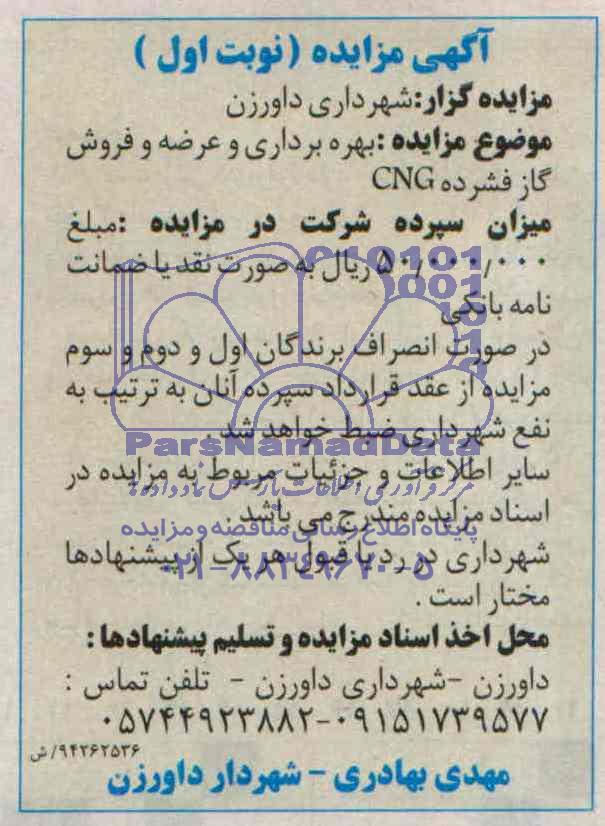 آگهی مزایده (نوبت اول)
مزایده گزار: شهرداری داورزن
موضوع مزایده: بهره برداری و عرضه و فروش
گاز فشرده CNG
میزان سپرده شرکت در مزایده: مبلغ
۵۰/۰۰۰/۰۰۰ ریال به صورت نقد یا ضمانت
نامه بانکی
در صورت انصراف برندگان اول و دوم و سوم
مزایده از عقد قرارداد سپرده آنان به ترتیب به
نفع شهرداری ضبط خواهد شد.
سایر اطلاعات و جزئیات مربوط به مزایده در
اسناد مزایده مندرج می باشد.
شهرداری در رد یا قبول هر یک از پیشنهادها
مختار است.
محل اخذ اسناد مزایده و تسلیم پیشنهادها:
داورزن - شهرداری داورزن - تلفن تماس:
۰۵۷۴۴۹۲۳۸۸۲-۰۹۱۵۱۷۳۹۵۷۷
۹۴۲۶۲۵۳۶/ش
مهدی بهادری - شهردار داورزن
ParsNamadData
پایگاه اطلاع رسانی مناقصه و مزایده
۰۲۱-۸۸۳۴۹۶۷۰-۵